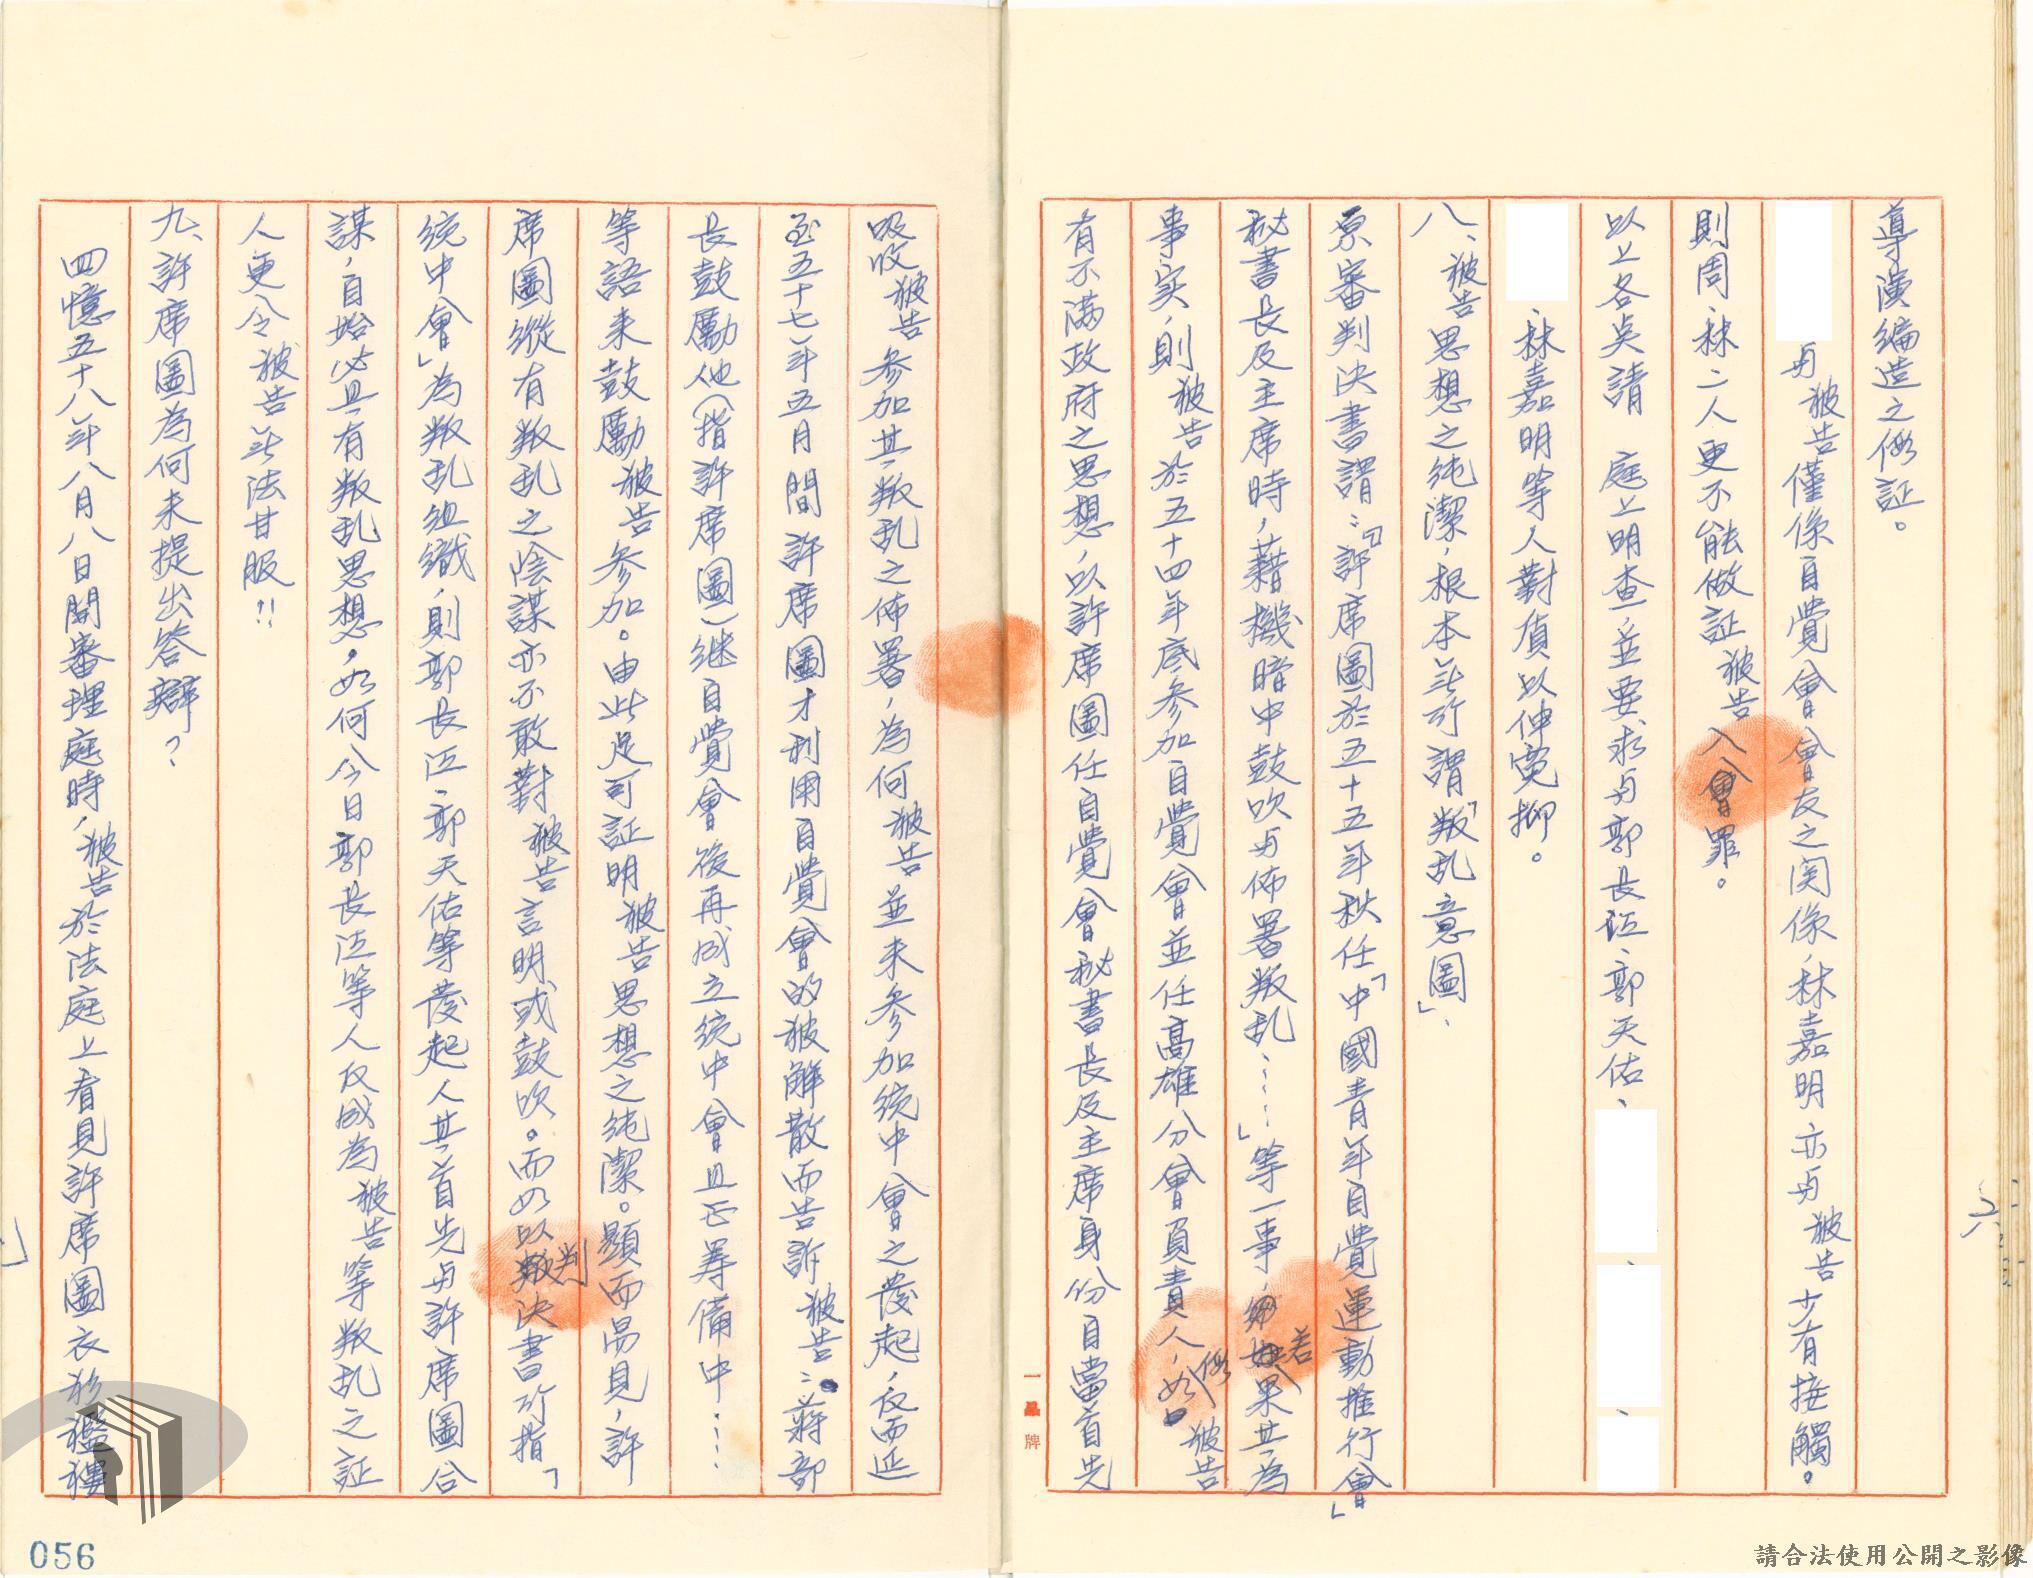 導演編造之假証。
与被告僅係自覺會會友之関係，林嘉明亦与被告少有接觸。
則周、林二人更不能做証被告入會罪。
以上各点請　庭上明查，並要求与郭長江、郭天佑、
、林嘉明等人對質以伸寃抑。
八、被告思想之純潔，根本无所謂「叛乱意圖」、
原審判決書謂：「許席圖於五十五年秋任「中國青年自覺運動推行會」
秘書長及主席時，藉機暗中鼓吹与佈署叛乱……」等一事，若果其為
事实，則被告於五十四年底参加自覺會並任高雄分會負責人，假如被告
有不满政府之思想，以許席圖任自覺會秘書長及主席身份自當首先
一
牌
吸收被告参加其叛乱之佈署，為何被告並未参加統中會之發起，反而延
至五十七年五月間許席圖才利用自覺會的被解散而告訴被告：蒋部
長鼓勵他（指許席圖）继自覺會後再成立統中會且正筹備中……
等語来鼓勵被告参加。由此足可証明被告思想之純潔。顯而昜見，許
席圖縱有叛乱之陰謀亦不敢對被告言明或鼓吹。而如以判決書所指「
統中會」為叛乱組織，則郭長江、郭天佑等發起人其首先与許席圖合
謀，自始必具有叛乱思想。如何今日郭長江等人反成為被告等叛乱之証
人更令被告无法甘服!!
九、許席圖為何未提出答辯？
四憶五十八年八月八日開審理庭時，被告於法庭上看見許席圖衣衫襤褸
056
請合法使用公開之影像